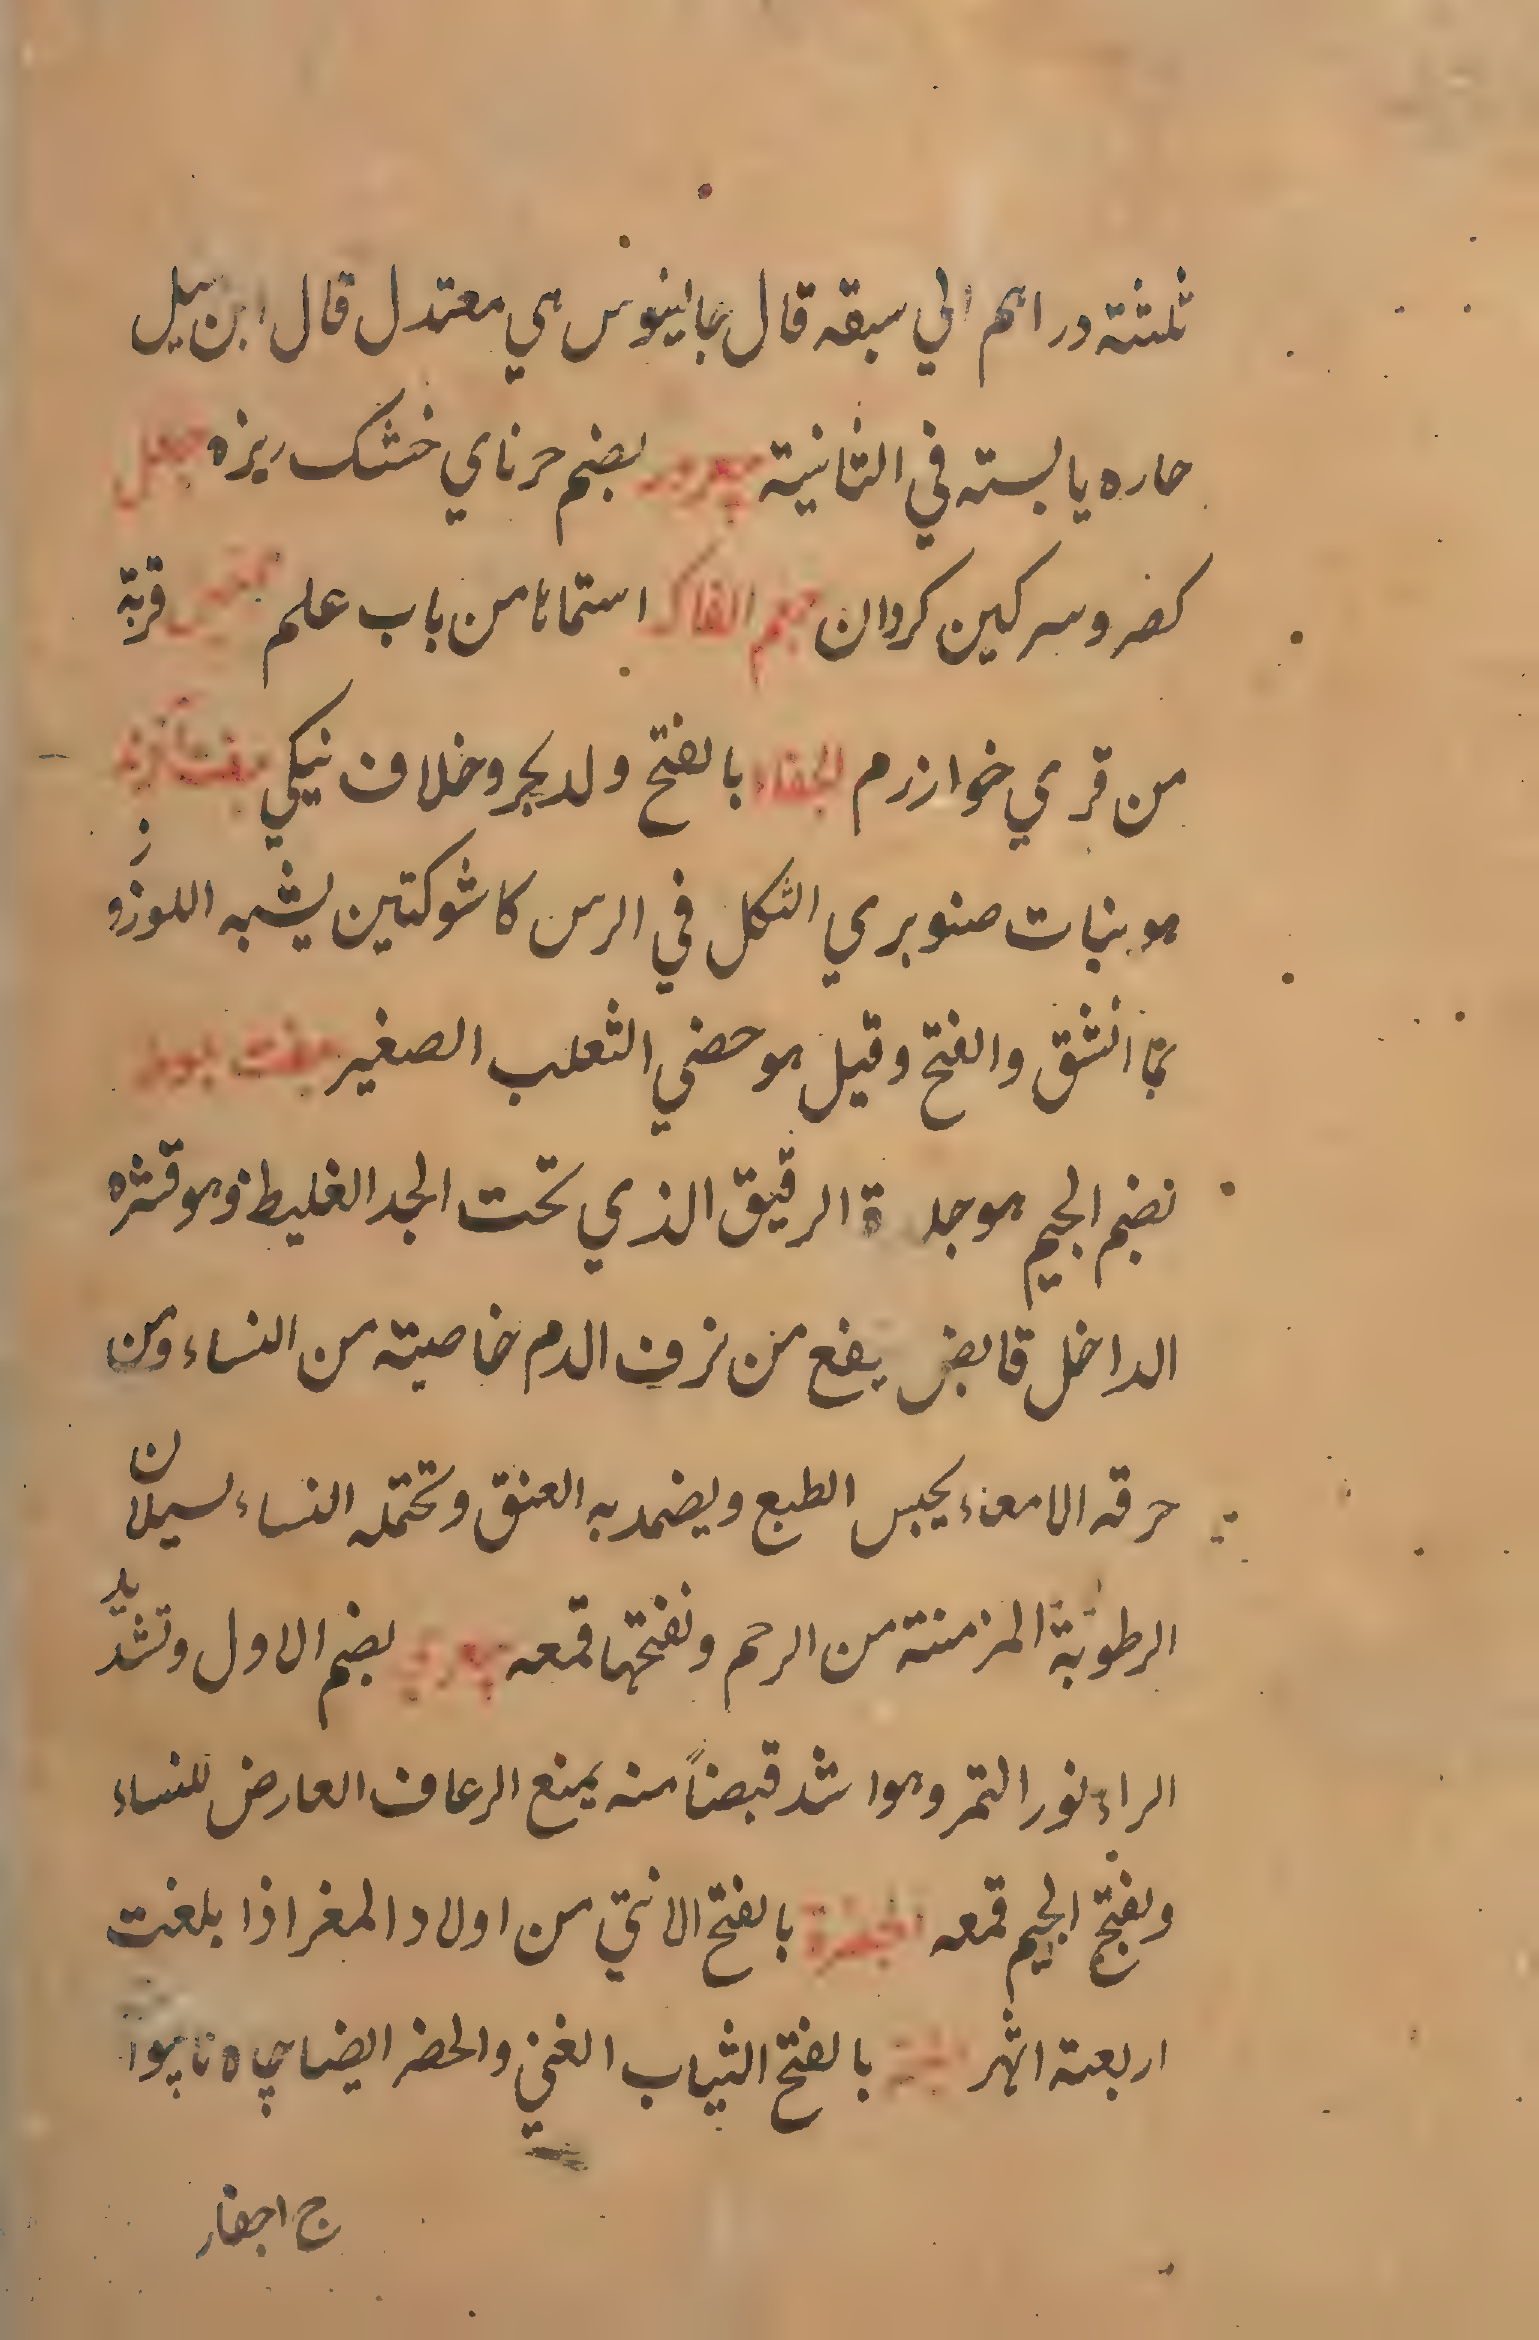 ثلثة دراهم الي سبقه قال جالينوس هي معتدل قال ابن سيل
حاره يابسته في الثانية بضم حرناي خشك ريزه جعل
كصرو سركين كردان جم الفاكر استماناس من باب علم قرية
من قري خوارزم الجفاء بالفتح ولد بجر وخلاف نيكي
هو بنبات صنوبري الشكل في الرس كا شوكتين يشبه اللوز و
ز
بما انشق والفتح وقيل هو حضي الثعلب الصغير جفت بلوط
نضم الجيم هو جلدة الرقيق الذي تحت الجد الغليظ وهو قشره
الداخل قابض يفع من نزف الدم خاصيته من النساء ومن
حرقه الامعاء يحبس الطبع ويضمد به العنق وتحتمله النساء لسيلان
الرطوبة المزمنة من الرحم ونفتحها قمعه بضم الاول وتشديد
الراء نور التمر وهو اشد قبضاً منه يمنع الرعاف العارض للنساء
وبفتح الجيم قمعه الجفرة بالفتح الانثي من اولاد المغر اذا بلغت
اربعة اشهر بالفتح الثياب الغني والحضر ايضا چاه ناپوا
ج اجفار